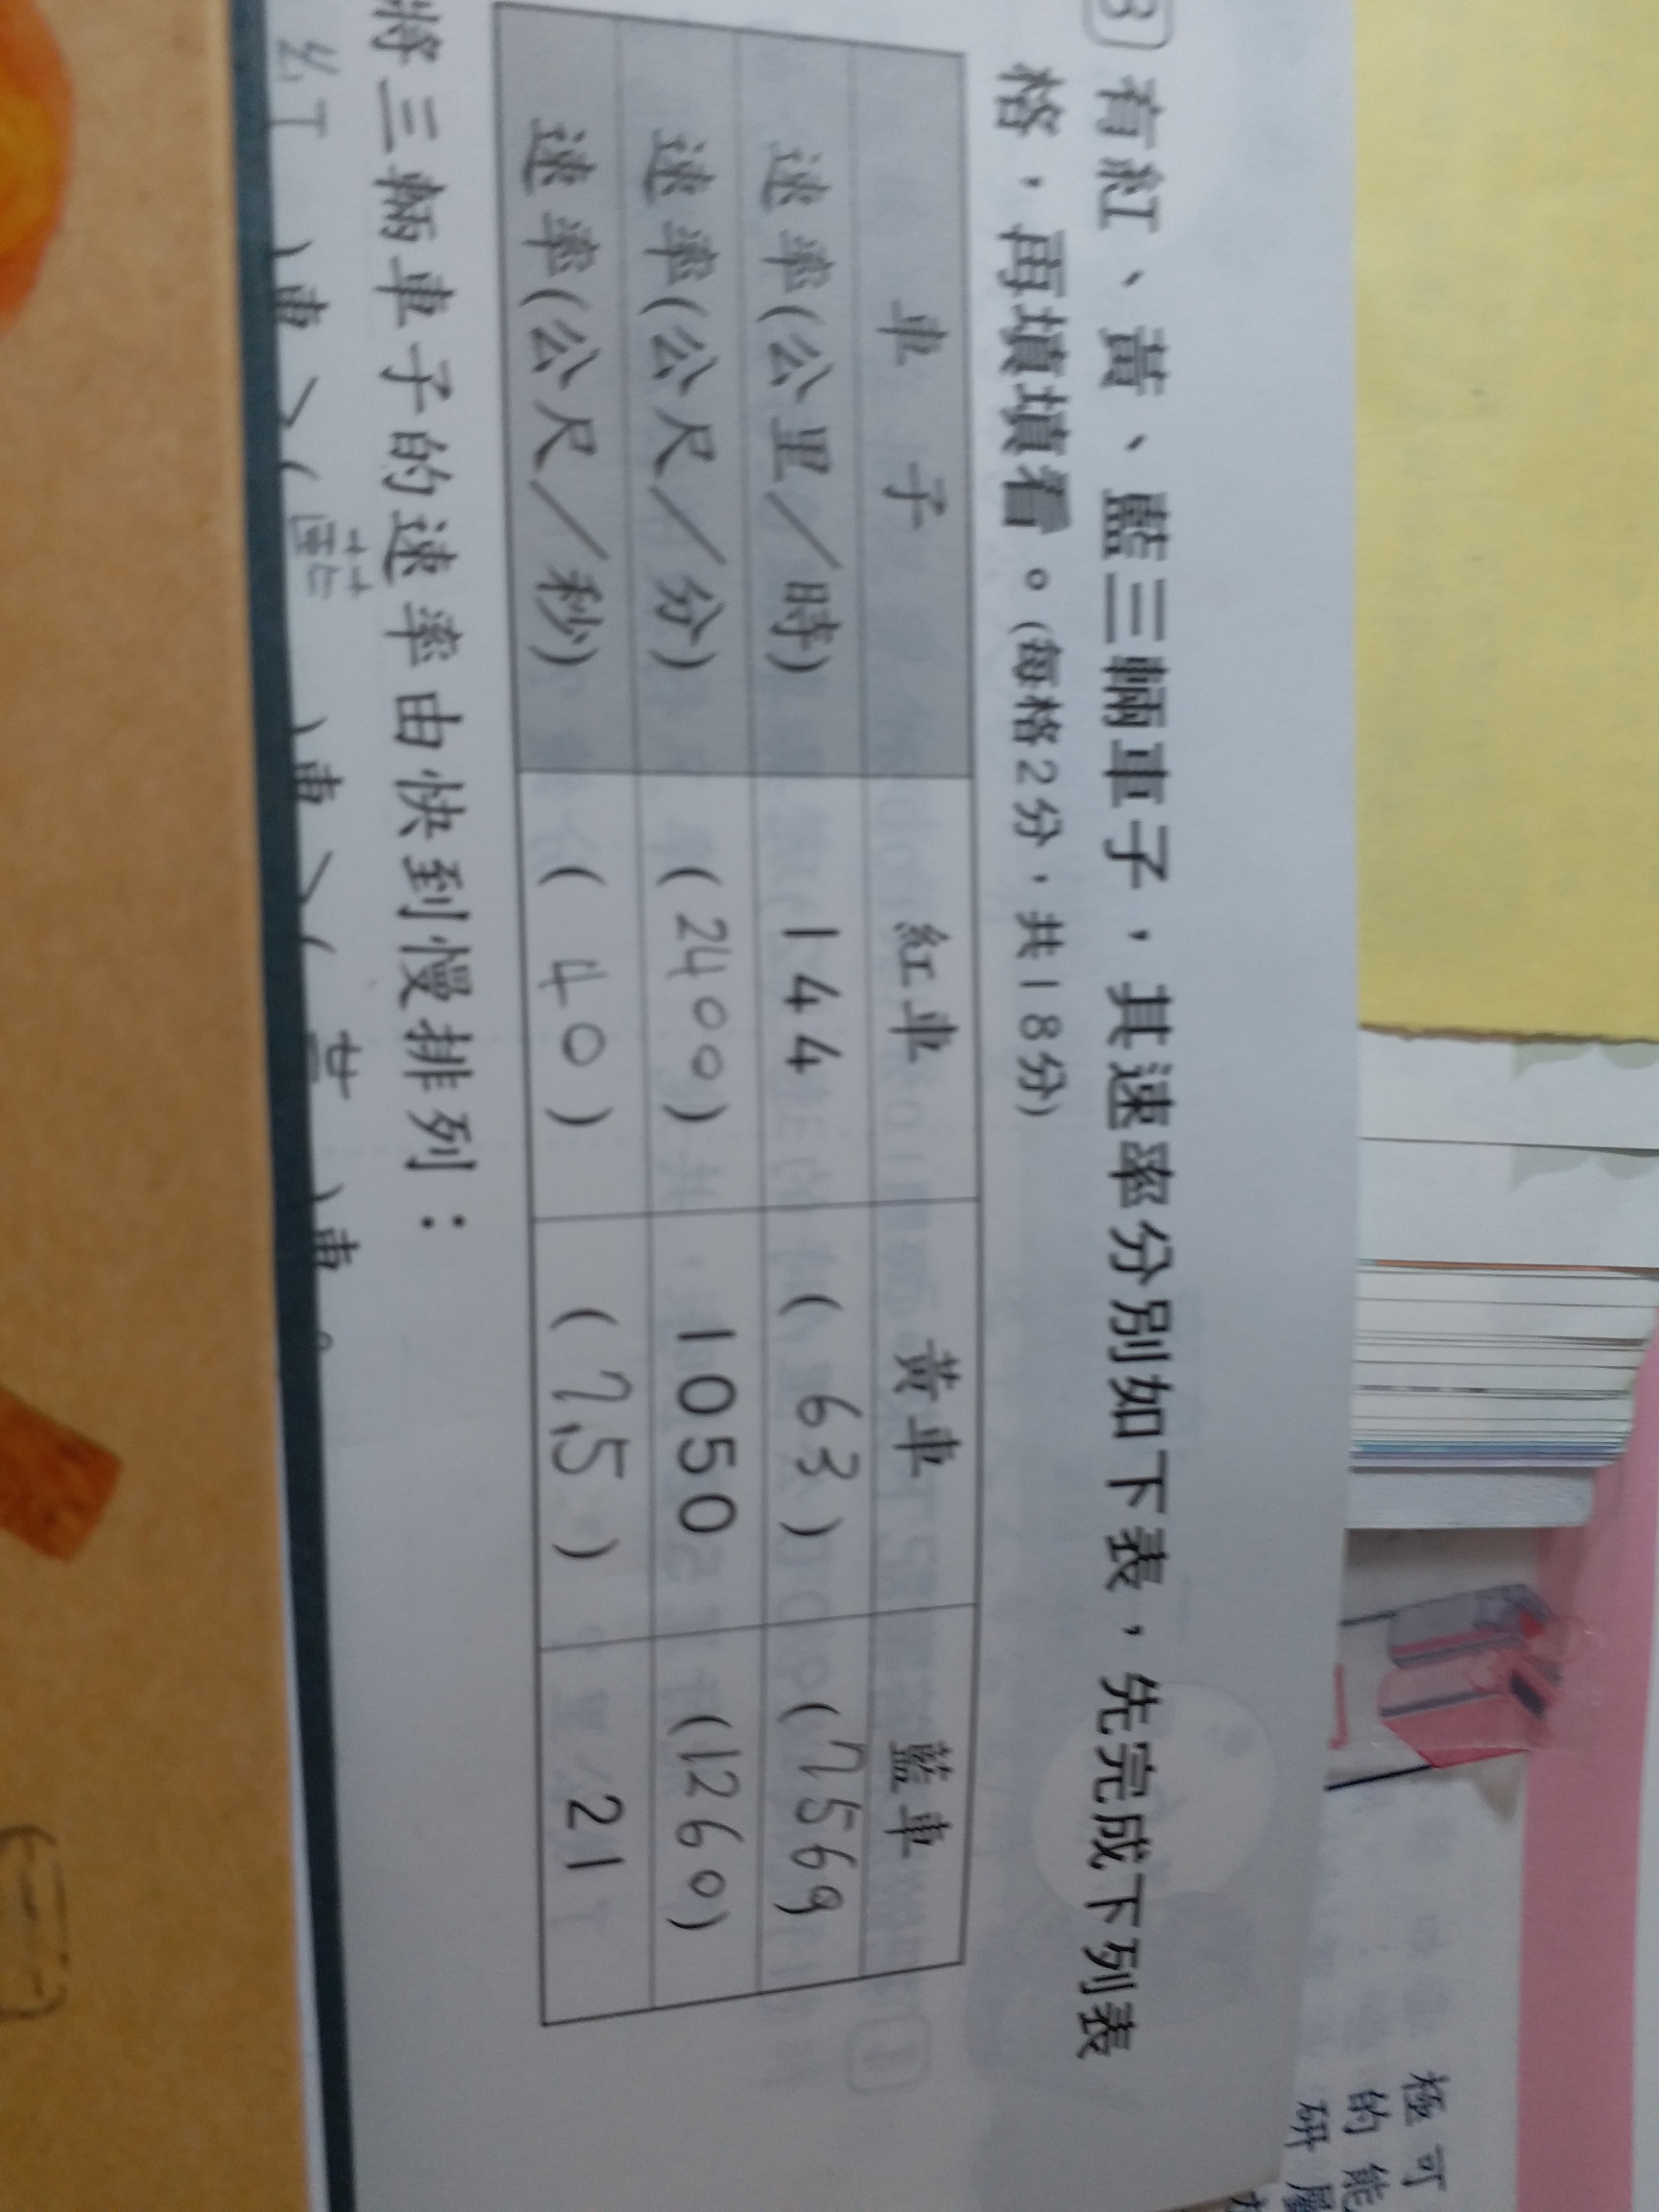 3 有紅、黃、藍三輛車子，其速率分別如下表，先完成下列表
格，再填填看。(每格2分，共18分)
車子 紅車 黃車 藍車
速率(公里／時) 144 ( 63 ) (756
速率(公尺／分) (2400) 1050 (1260)
速率(公尺／秒) ( 40 ) ( 7.5 ) 21
將三輛車子的速率由快到慢排列：
)車＞( 藍 )車＞( )車。
極可
的能
研屬